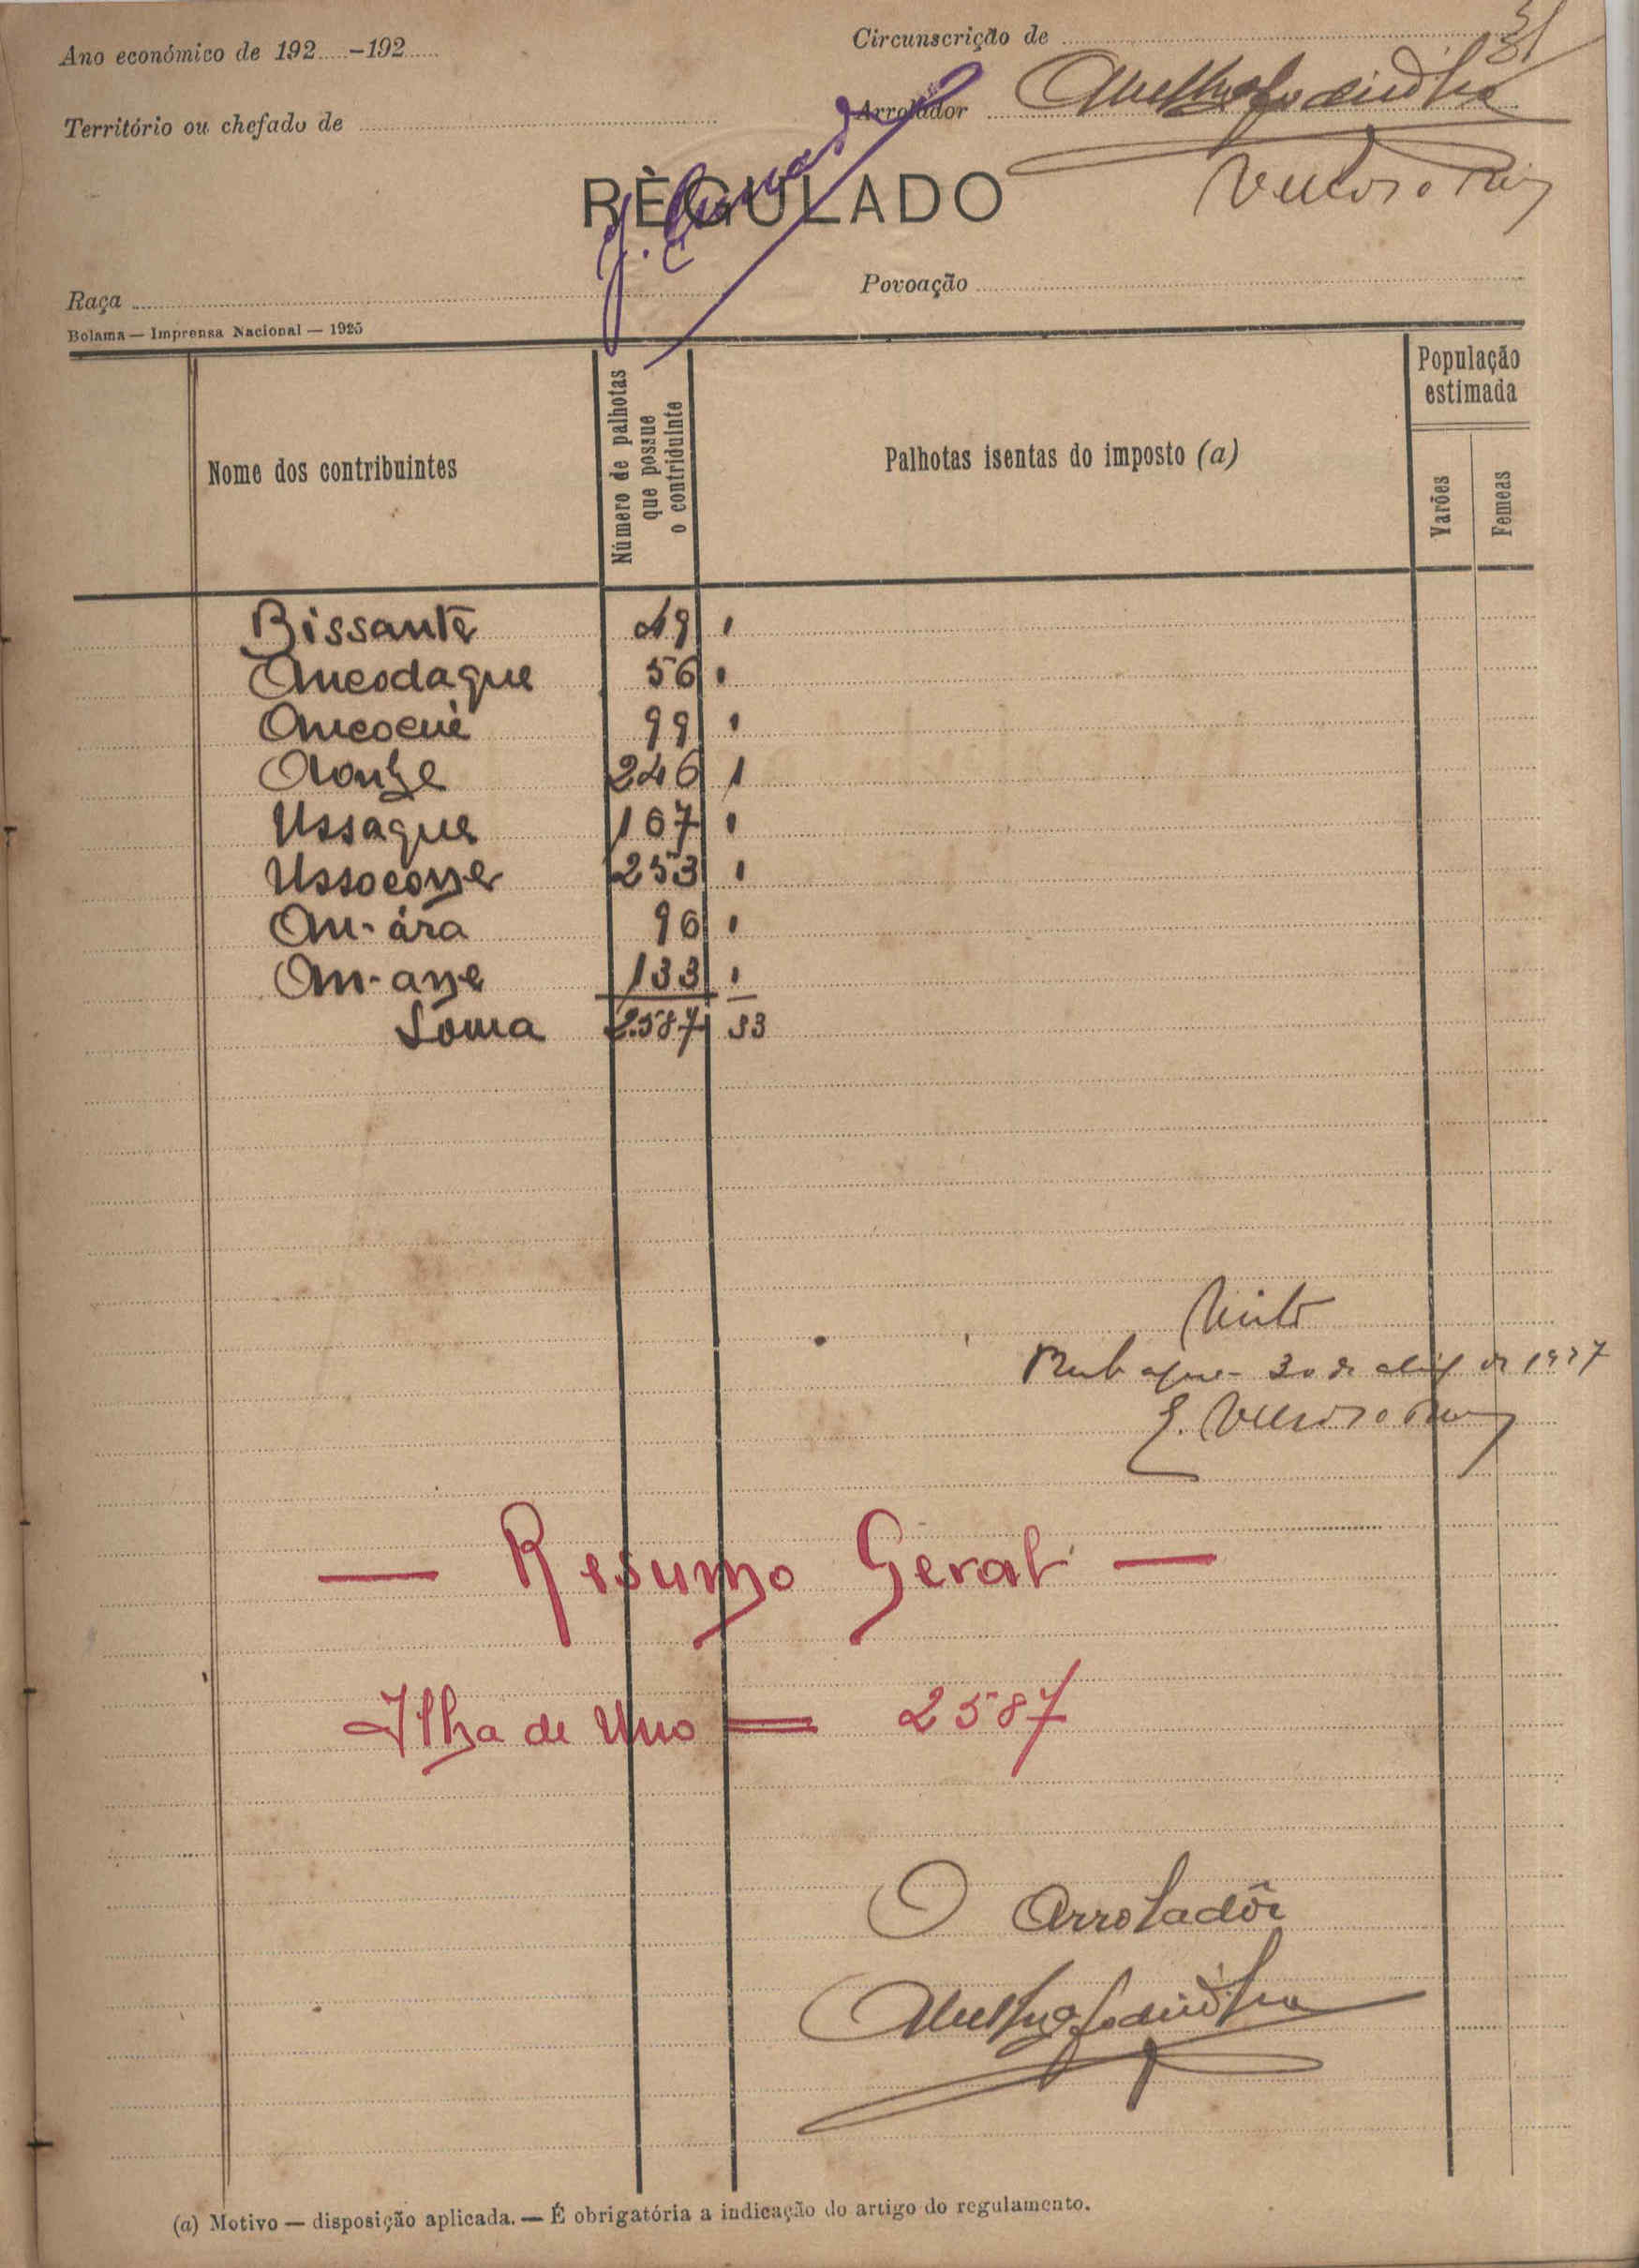 31
Ano económico de 192.....-192.....
Circunscrição de
Território ou chefado de
Arrolador
RÈGULADO
Raça
Povoação
Bolama — Imprensa Nacional — 1925
Nome dos contribuintes
Número de palhotas
que possue
o contriduinte
Palhotas isentas do imposto (a)
População
estimada
Varões
Femeas
Bissante 49
Ancodaque 56
99
246 1
Ussaque 167
253
An-ára 96
An-aye 133
Sôma 2.587 33
Visto
Bubaque 30 de abril de 1927
— Resumo Geral —
Ilha de Uno = 2587
O Arroladôr
(a) Motivo — disposição aplicada. — É obrigatória a indicação do artigo do regulamento.